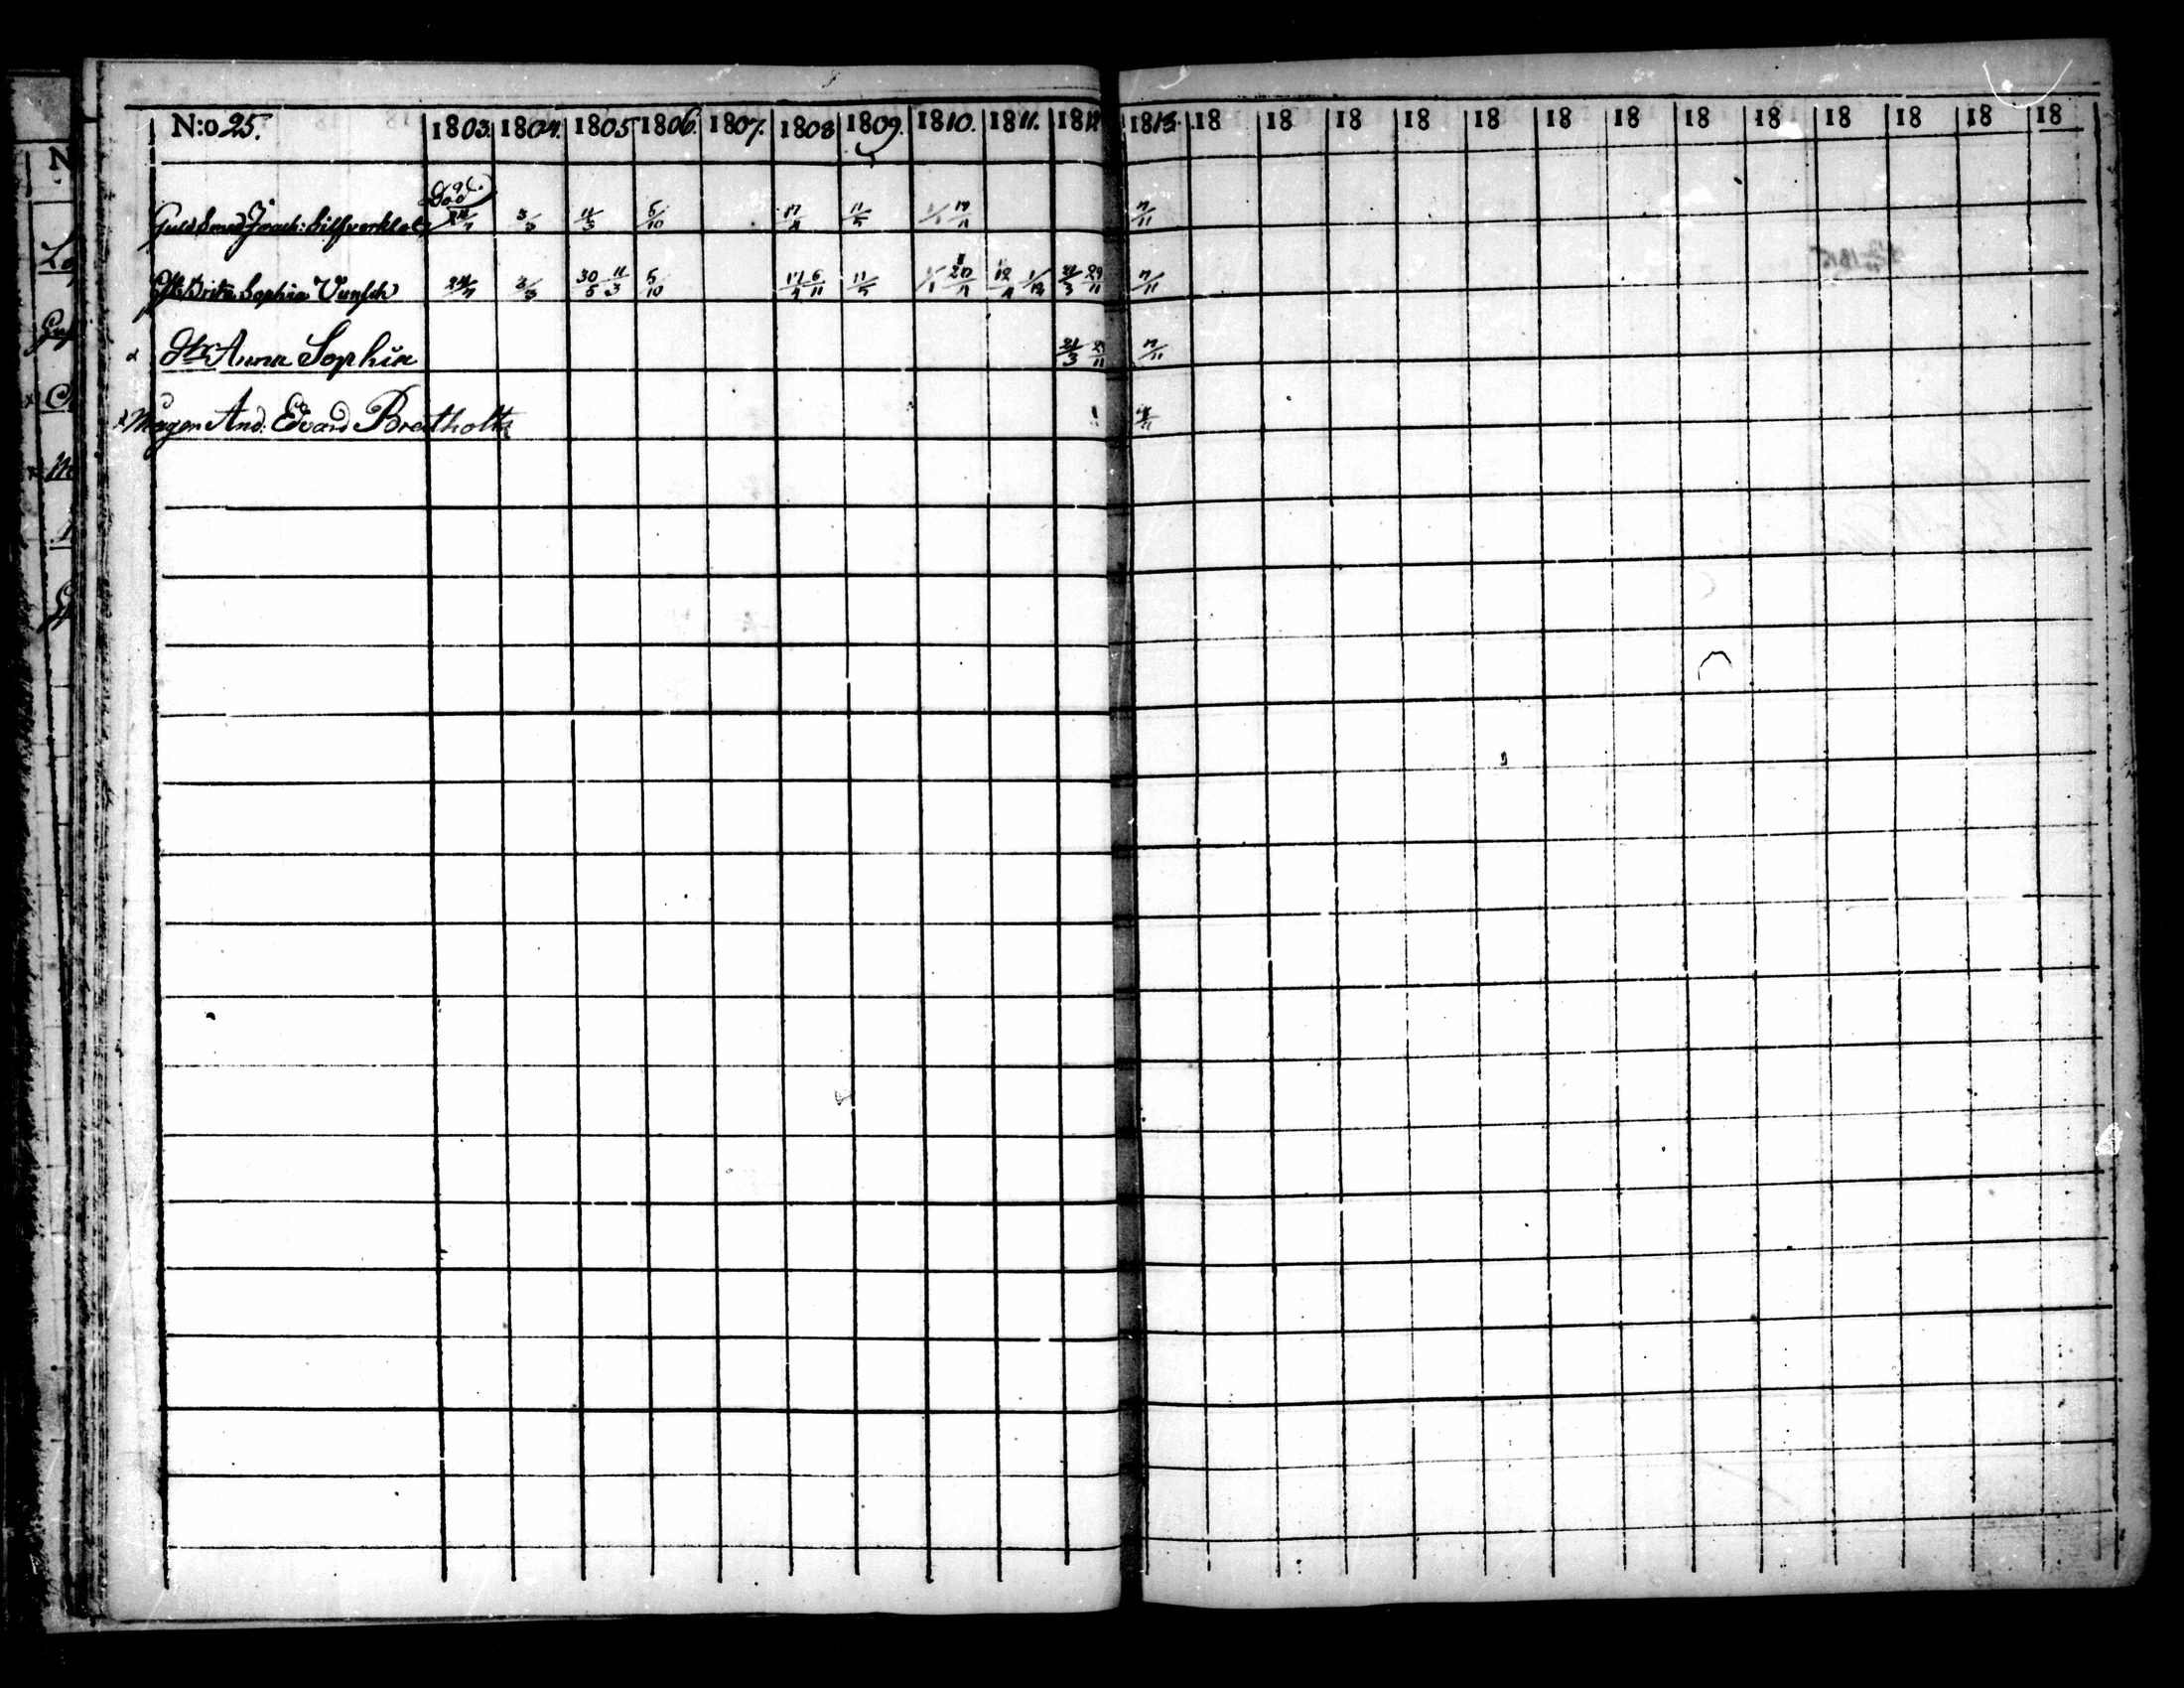 N:o 25. 1803. 1804. 1805 1806. 1807. 1808 1809. 1810. 1811. 1812 1813. 18 18 18 18 18 18 18 18 18 18 18 18 18
Guldsmed Joach: Silfverklo 24/7 3/3 11/3 5/10 17/4 11/5 1/1 19/11 7/11
H. Brita Sophia Vunsch 24/7 3/3 30/5 11/3 5/10 17/4 6/11 11/5 1/1 12/4 1/12 21/3 29/11 7/11
Anna Sophia 21/3 29/11 7/11
And: Edvard Breitholtz